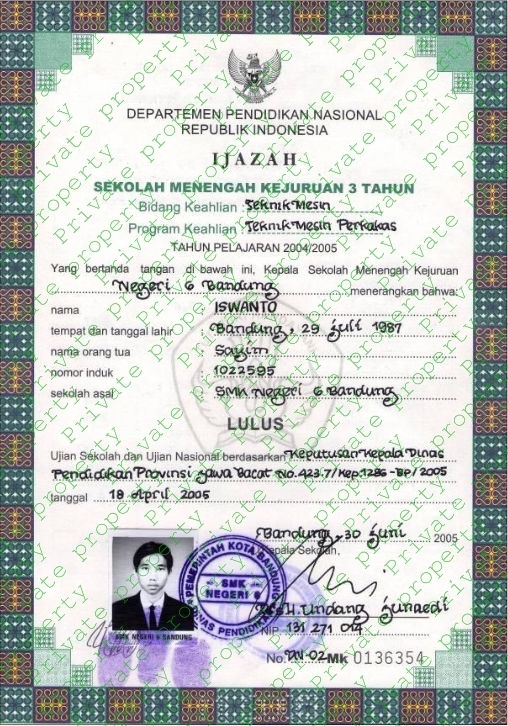 DEPARTEMEN PENDIDIKAN NASIONAL
REPUBLIK INDONESIA
IJAZAH
SEKOLAH MENENGAH KEJURUAN 3 TAHUN
Bidang Keahlian : Teknik Mesin
Program Keahlian : Teknik Mesin Perkakas
TAHUN PELAJARAN 2004/2005
Yang bertanda tangan di bawah ini, Kepala Sekolah Menengah Kejuruan
Negeri 6 Bandung menerangkan bahwa:
nama : ISWANTO
tempat dan tanggal lahir : Bandung, 29 Juli 1987
nama orang tua : Sayim
nomor induk : 1022595
sekolah asal : SMK Negeri 6 Bandung
LULUS
Ujian Sekolah dan Ujian Nasional berdasarkan Keputusan Kepala Dinas
Pendidikan Provinsi Jawa Barat No. 423.7/Kep.1286-BP/2005
tanggal 18 April 2005
Bandung, 30 Juni 2005
Kepala Sekolah,
PEMERINTAH KOTA BANDUNG
SMK
NEGERI 6
DINAS PENDIDIKAN
H. Undang Junaedi
NIP. 131 271 014
SMK NEGERI 6 BANDUNG
No. Mk 0136354
Private property